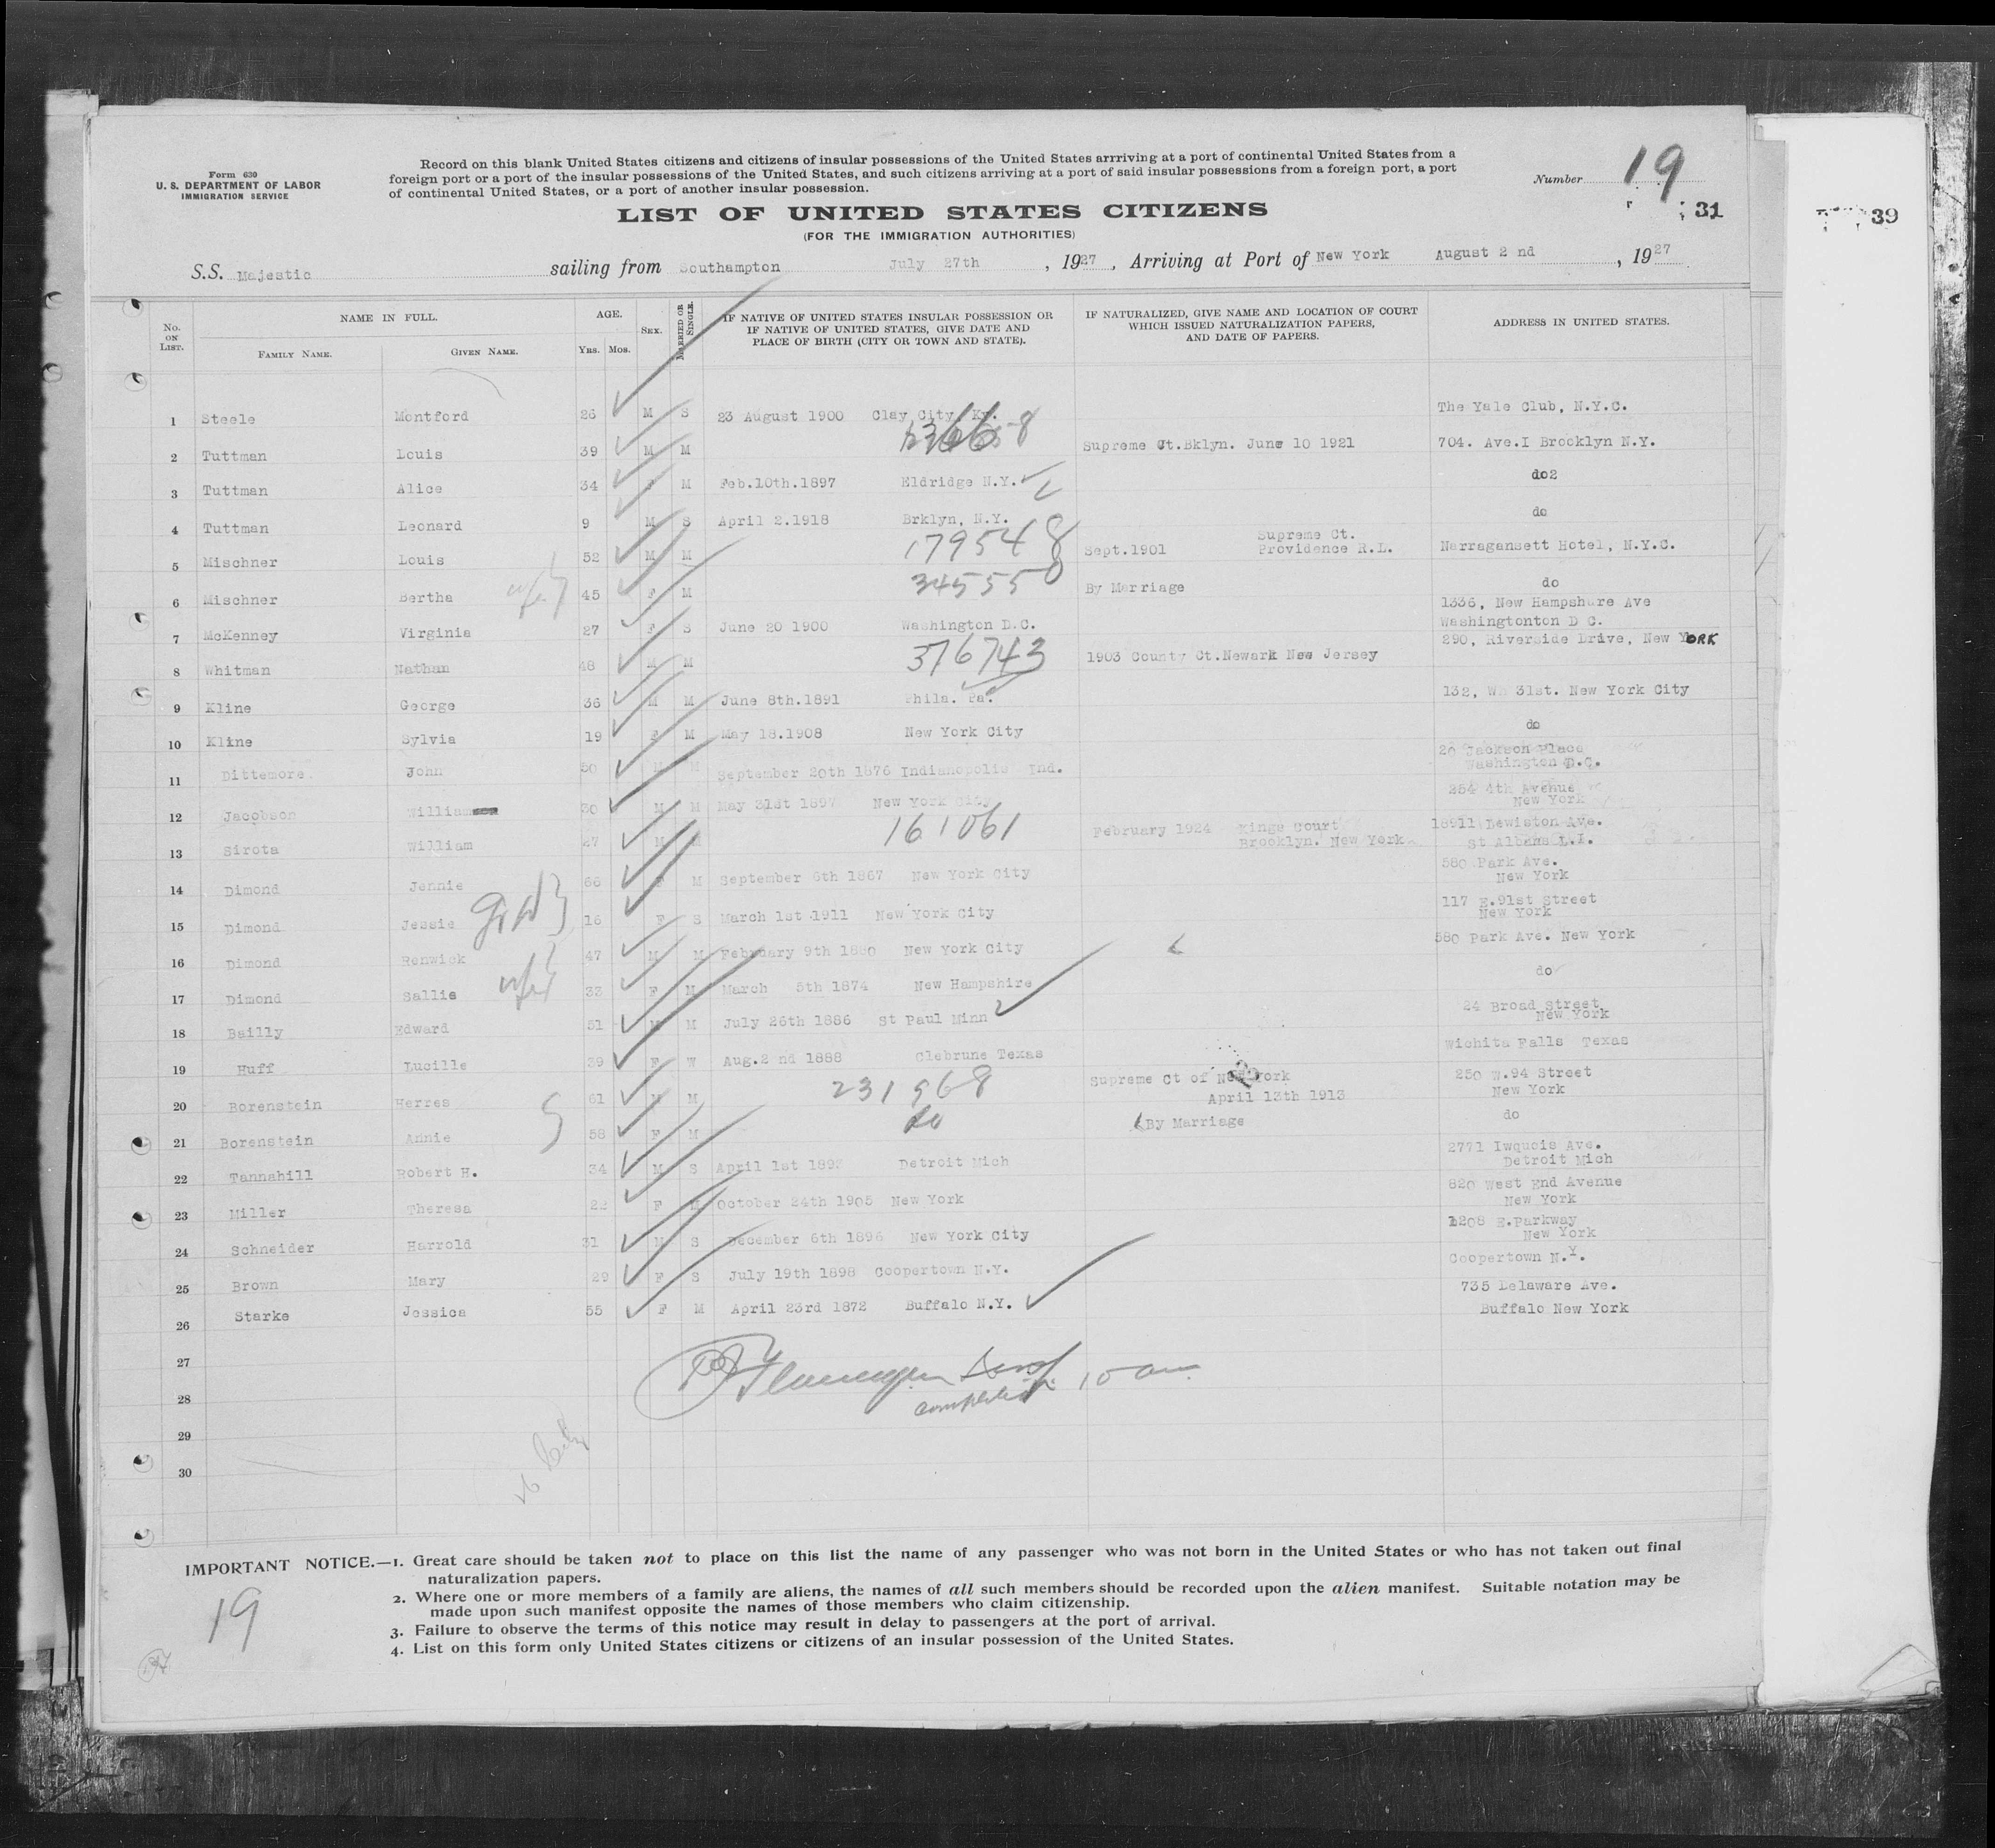 Form 630
U. S. DEPARTMENT OF LABOR
IMMIGRATION SERVICE
Record on this blank United States citizens and citizens of insular possessions of the United States arrriving at a port of continental United States from a
foreign port or a port of the insular possessions of the United States, and such citizens arriving at a port of said insular possessions from a foreign port, a port
of continental United States, or a port of another insular possession.
Number 19
31
39
LIST OF UNITED STATES CITIZENS
(FOR THE IMMIGRATION AUTHORITIES)
S.S. Majestic sailing from Southampton July 27th , 1927 , Arriving at Port of New York August 2 nd , 1927
No. ON LIST. NAME IN FULL. FAMILY NAME. GIVEN NAME. AGE. YRS. MOS. SEX. MARRIED OR SINGLE. IF NATIVE OF UNITED STATES INSULAR POSSESSION OR IF NATIVE OF UNITED STATES, GIVE DATE AND PLACE OF BIRTH (CITY OR TOWN AND STATE). IF NATURALIZED, GIVE NAME AND LOCATION OF COURT WHICH ISSUED NATURALIZATION PAPERS, AND DATE OF PAPERS. ADDRESS IN UNITED STATES.
1 Steele Montford 26 M S 23 August 1900 Clay City, Ky. The Yale Club, N.Y.C.
2 Tuttman Louis 39 M M Supreme Ct.Bklyn. June 10 1921 704. Ave.I Brooklyn N.Y.
3 Tuttman Alice 34 F M Feb.10th.1897 Eldridge N.Y. do2
4 Tuttman Leonard 9 M S April 2.1918 Brklyn, N.Y. do
5 Mischner Louis 52 M M 179548 Sept.1901 Supreme Ct. Providence R.I. Narragansett Hotel, N.Y.C.
6 Mischner Bertha wife 45 F M 345550 By Marriage do
7 McKenney Virginia 27 F S June 20 1900 Washington D.C. 1336, New Hampshure Ave Washingtonton D C.
8 Whitman Nathan 48 M M 376743 1903 County Ct.Newark New Jersey 290, Riverside Drive, New YORK
9 Kline George 36 M M June 8th.1891 Phila. Pa. 132, W. 31st. New York City
10 Kline Sylvia 19 F M May 18.1908 New York City do
11 Dittemore John 50 M M September 20th 1876 Indianopolis Ind. 20 Jackson Place Washington D.C.
12 Jacobson William 30 M M May 31st 1897 New York City 254 4th Avenue New York
13 Sirota William 27 M M 161061 February 1924 Kings Court Brooklyn. New York 18911 Lewiston Ave. St Albans L.I.
14 Dimond Jennie 66 F M September 6th 1867 New York City 580 Park Ave. New York
15 Dimond Jessie 16 F S March 1st 1911 New York City 117 E.91st Street New York
16 Dimond Renwick 47 M M February 9th 1880 New York City 580 Park Ave. New York
17 Dimond Sallie wife 33 F M March 5th 1874 New Hampshire do
18 Bailly Edward 51 M M July 26th 1886 St Paul Minn 24 Broad Street New York
19 Huff Lucille 39 F W Aug.2 nd 1888 Clebrune Texas Wichita Falls Texas
20 Borenstein Herres 61 M M 231968 Supreme Ct of New York April 13th 1913 250 W.94 Street New York
21 Borenstein Annie 58 F M do By Marriage do
22 Tannahill Robert H. 34 M S April 1st 1893 Detroit Mich 2771 Iwquois Ave. Detroit Mich
23 Miller Theresa 22 F M October 24th 1905 New York 820 West End Avenue New York
24 Schneider Harrold 31 M S December 6th 1896 New York City 1208 E.Parkway New York
25 Brown Mary 29 F S July 19th 1898 Coopertown N.Y. Coopertown N.Y.
26 Starke Jessica 55 F M April 23rd 1872 Buffalo N.Y. 735 Delaware Ave. Buffalo New York
27
28
29
30
10 am
IMPORTANT NOTICE.—1. Great care should be taken not to place on this list the name of any passenger who was not born in the United States or who has not taken out final
naturalization papers.
2. Where one or more members of a family are aliens, the names of all such members should be recorded upon the alien manifest. Suitable notation may be
made upon such manifest opposite the names of those members who claim citizenship.
3. Failure to observe the terms of this notice may result in delay to passengers at the port of arrival.
4. List on this form only United States citizens or citizens of an insular possession of the United States.
19